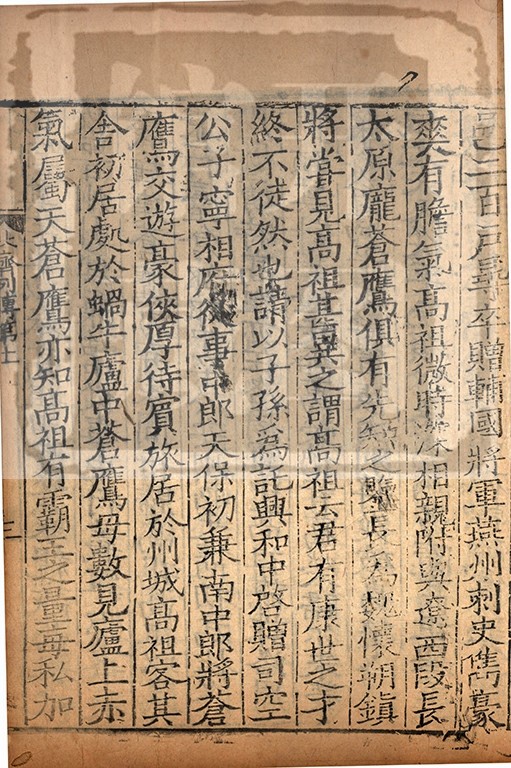 邑二百戶尋卒贈輔國將軍燕州刺史雋豪
爽有膽氣高祖微時深相親附與遼西段長
太原龐蒼鷹俱有先知之鑒長為魏懷朔鎮
將嘗見高祖甚異之謂高祖云君有康世之才
終不徒然也請以子孫為託興和中啓贈司空
公子寧相府從事中郎天保初兼南中郎將蒼
鷹交遊豪俠厚待賓旅居於州城高祖客其
舍初居處於蝸牛廬中蒼鷹母數見廬上赤
氣屬天蒼鷹亦知高祖有霸王之量每私加
齊列傳第十